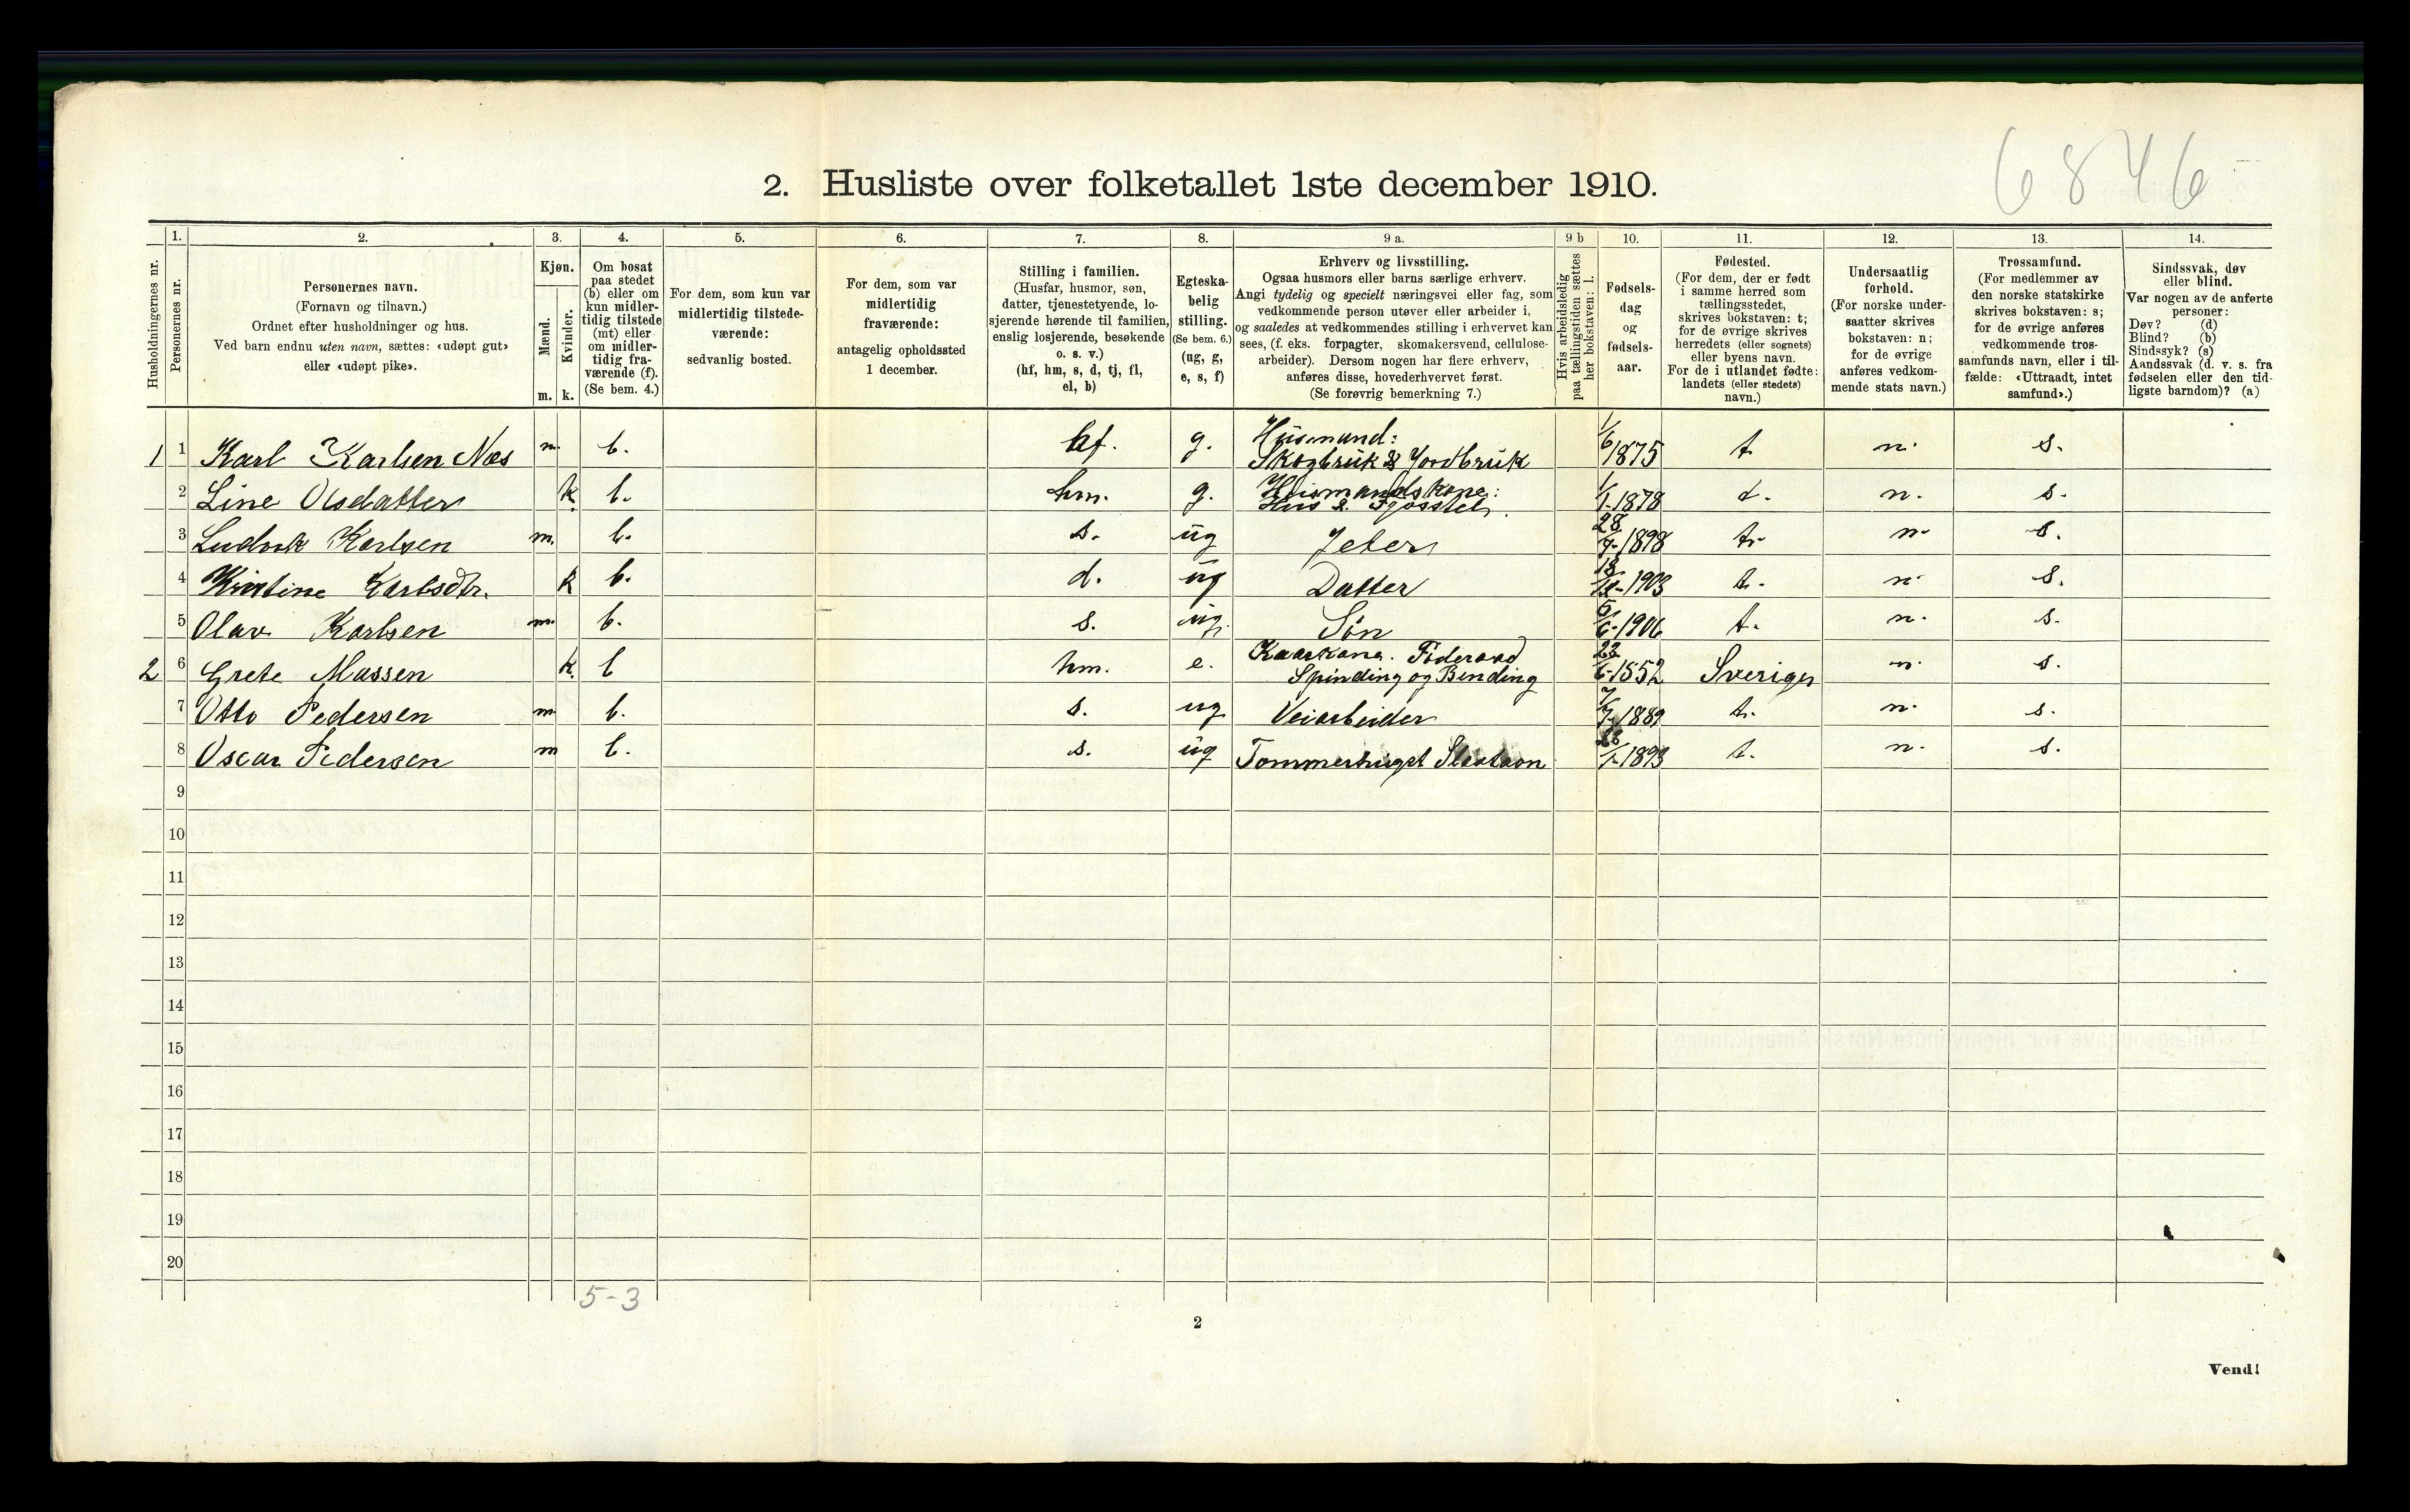 6846
2. Husliste over folketallet 1ste december 1910.
1. 2. 3. 4. 5. 6. 7. 8. 9 a. 9 b 10. 11. 12. 13. 14.
Husholdningernes nr.
Personernes nr.
Personernes navn.
(Fornavn og tilnavn.)
Ordnet efter husholdninger og hus.
Ved barn endnu uten navn, sættes: «udøpt gut»
eller «udøpt pike».
Kjøn.
Mænd.
Kvinder.
m. k.
Om bosat
paa stedet
(b) eller om
kun midler-
tidig tilstede
(mt) eller
om midler-
tidig fra-
værende (f).
(Se bem. 4.)
For dem, som kun var
midlertidig tilstede-
værende:
sedvanlig bosted.
For dem, som var
midlertidig
fraværende:
antagelig opholdssted
1 december.
Stilling i familien.
(Husfar, husmor, søn,
datter, tjenestetyende, lo-
sjerende hørende til familien,
enslig losjerende, besøkende
o. s. v.)
(hf, hm, s, d, tj, fl,
el, b)
Egteska-
belig
stilling.
(Se bem. 6.)
(ug, g,
e, s, f)
Erhverv og livsstilling.
Ogsaa husmors eller barns særlige erhverv.
Angi tydelig og specielt næringsvei eller fag, som
vedkommende person utøver eller arbeider i,
og saaledes at vedkommendes stilling i erhvervet kan
sees, (f. eks. forpagter, skomakersvend, cellulose-
arbeider). Dersom nogen har flere erhverv,
anføres disse, hovederhvervet først.
(Se forøvrig bemerkning 7.)
Hvis arbeidsledig
paa tællingstiden sættes
her bokstaven: l.
Fødsels-
dag
og
fødsels-
aar.
Fødested.
(For dem, der er født
i samme herred som
tællingsstedet,
skrives bokstaven: t;
for de øvrige skrives
herredets (eller sognets)
eller byens navn.
For de i utlandet fødte:
landets (eller stedets)
navn.)
Undersaatlig
forhold.
(For norske under-
saatter skrives
bokstaven: n;
for de øvrige
anføres vedkom-
mende stats navn.)
Trossamfund.
(For medlemmer av
den norske statskirke
skrives bokstaven: s;
for de øvrige anføres
vedkommende tros-
samfunds navn, eller i til-
fælde: «Uttraadt, intet
samfund».)
Sindssvak, døv
eller blind.
Var nogen av de anførte
personer:
Døv? (d)
Blind? (b)
Sindssyk? (s)
Aandssvak (d. v. s. fra
fødselen eller den tid-
ligste barndom)? (a)
1 1 Karl Karlsen Næs m. b. hf. g. Husmand: Skogbruk & Jordbruk 1/6 1875 t. n. s.
2 Line Olsdatter k. b. hm. g. Husmandskone: Hus & Fjøsstel. 1/1-1878 t. n. s.
3 Ludvik Karlsen m. b. s. ug Jeter 28 1898 t. n. s.
4 Kristine Karlsdtr. k b. d. ug Datter 1903 t. n. s.
5 Olav Karlsen m. b. s. ug. Søn 5/6-1906 t. n. s.
2 6 Grete Massen k. b hm. e. Kaarkone. Föderaad Spinding og Binding 1852 Sverige n. s.
7 Otto Pedersen m. b. s. ug Veiarbeider 7/7-1889 t. n. s.
8 Oscar Pedersen m b. s. ug Tommerhugst 1893 t. n. s.
9
10
11
12
13
14
15
16
17
18
19
20
5-3
2
Vend!